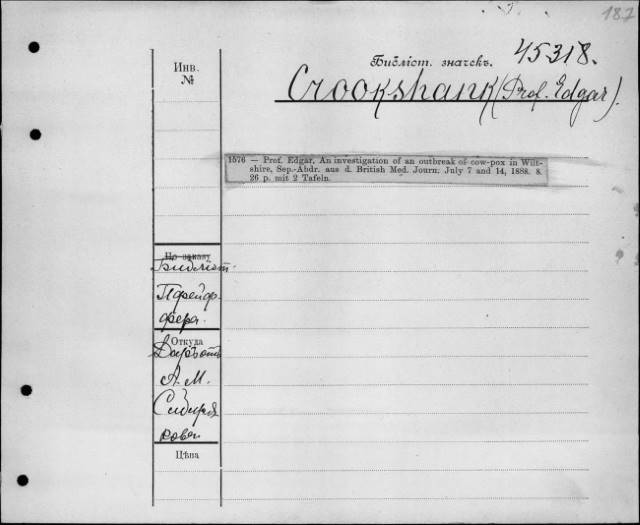 187
Библіот. значекъ. 45318.
Инв.
№
Crookshank (Prof. Edgar).
1576 — Prof. Edgar, An investigation of an outbreak of cow-pox in Wilt-
shire, Sep.-Abdr. aus d. British Med. Journ. July 7 and 14, 1888. 8.
26 p. mit 2 Tafeln.
По заказу
Библіот.
Пфейф-
фера.
Откуда
Даръ отъ
А. М.
Сибиря
кова
Цѣна